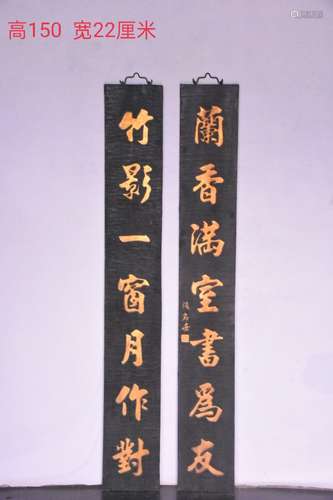 高150 宽22厘米
蘭香满室書為友
竹影一窗月作對